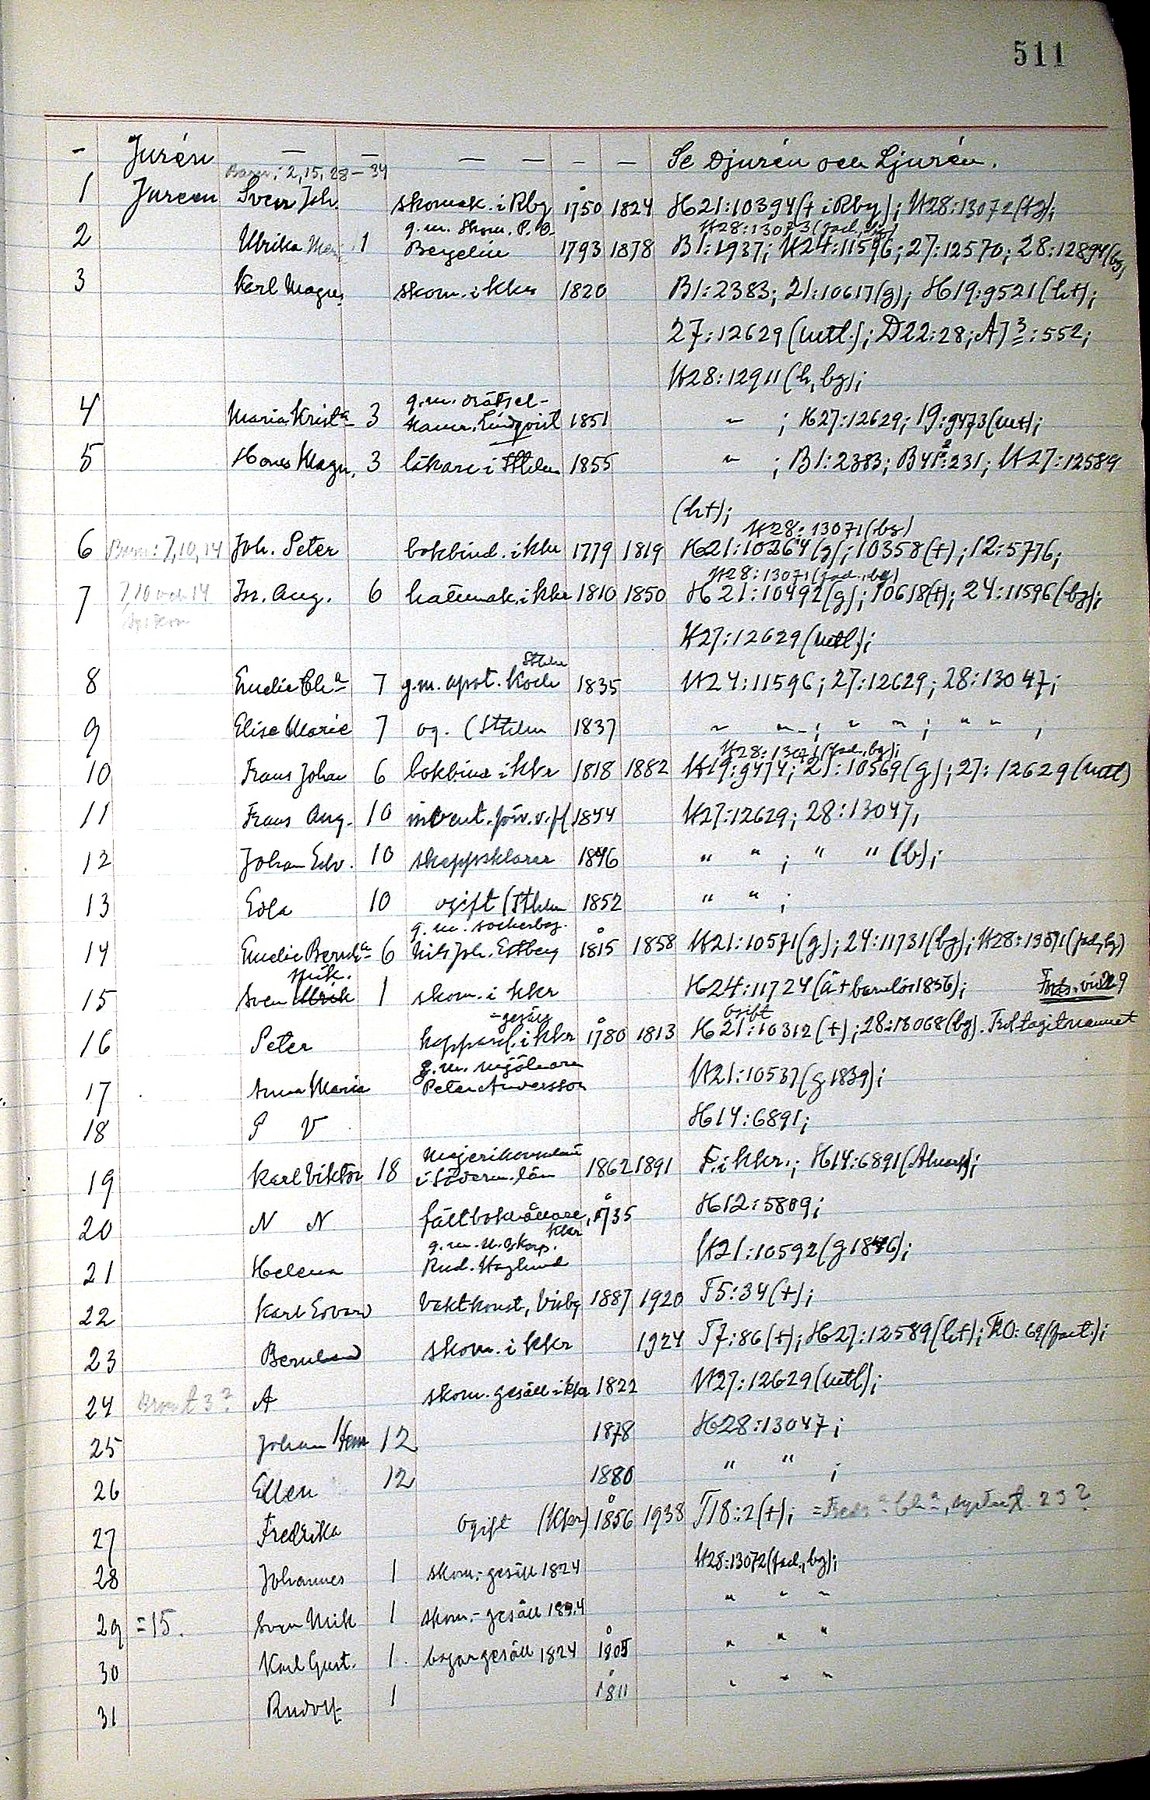 511
- Jurén — — — — - — Se Djurén och Ljurén.
Barn: 2, 15, 28-34
1 Jureen Sven Joh. skomak. i Rby 1750 1824 H21:10394 († i Rby); H28:13072 (bg);
g.m. Skom. P. O. H28:13073 (fad., bg)
2 Ulrika Mar. 1 Bergelin 1793 1878 B1:1937; H24:11596; 27:12570; 28:12894 (bg,
3 Karl Magn. skom. i kkr 1820 B1:2383; 21:10617 (g); H19:9521 (ht);
27:12629 (utl.); D22:28; A73:552;
H28:12911 (h, bg);
g.m. drätsel-
4 Maria Krist.a 3 kamr. Lindqvist 1851 – ; H27:12629; 19:9473 (utl);
5 Hans Magn. 3 läkare i Sthlm 1855 – ; B1:2383; B412:231; H27:12589
(ht);
H28:13071 (bg)
6 Barn: 7, 10, 14 Joh. Peter bokbind. i kkr 1779 1819 H21:10264 (g); 10358 (†); 12:5776;
H28:13071 (fad., bg)
7 7, 10 och 14 Jn. Aug. 6 hattmak. i kkr 1810 1850 H21:10492 (g); 10618 (†); 24:11596 (bg);
syskon H27:12629 (utl);
Sthlm
8 Emelie Ch.a 7 g.m. apot. Koch 1835 H24:11596; 27:12629; 28:13047;
9 Elise Marie 7 og. (Sthlm 1837 " " ; " " ; " " ;
H28:13071 (fad., bg);
10 Frans Johan 6 bokbind i kkr 1818 1882 H19:9474; 21:10569 (g); 27:12629 (utl)
11 Frans Aug. 10 intent. förv. v. fl 1844 H27:12629; 28:13047,
12 Johan Edv. 10 skeppsklarer 1846 " " ; " " (b);
13 Eda 10 ogift (Sthlm 1852 " " ;
g.m. sockerbag.
14 Emelie Bernh.a 6 Nils Joh. Estberg 1815 1858 H21:10571 (g); 24:11731 (bg); H28:13071 (fad, bg)
Nik.
15 Sven Ulrik 1 skom. i kkr H24:11724 (ä † barnlös 1856); Forts. vid 29
-gesäll Ogift
16 Peter kopparsl. i kkr 1780 1813 H21:10312 (†); 28:13068 (bg). Trol tagit namnet
g.m. mjölnaren
17 Anna Maria Peter Andersson H21:10537 (g 1839);
18 P V H14:6891;
Mejerikonsulent
19 Karl Viktor 18 i Söderm. län 1862 1891 F. i kkr.; H14:6891 ;
20 N N fältbokhållare, 1735 H12:5809;
g.m. u. korp. kkr
21 Helena Rud. Haglund H21:10592 (g 1846);
22 Karl Edvard Vaktkonst, Visby 1887 1920 T5:34 (†);
23 Bernhard skom. i kkr 1924 T7:86 (†); H27:12589 (ht); T20:69 ;
24 Bror t 3? A skom. gesäll i kkr 1822 H27:12629 (utl);
25 Johan Hem 12 1878 H28:13047;
26 Ellen 12 1880 " " ;
27 Fredrika Ogift (kkr) 1856 1938 T18:2 (†); = Fredr.a Ch.a, syster t. 23?
28 Johannes 1 skom.-gesäll 1824 H28:13072 (fad., bg);
29 =15. Sven Nik 1 skom.-gesäll 1824 " " "
30 Karl Gust. 1 bagargesäll 1824 1805 " " "
31 Rudolf 1 1811 " " "